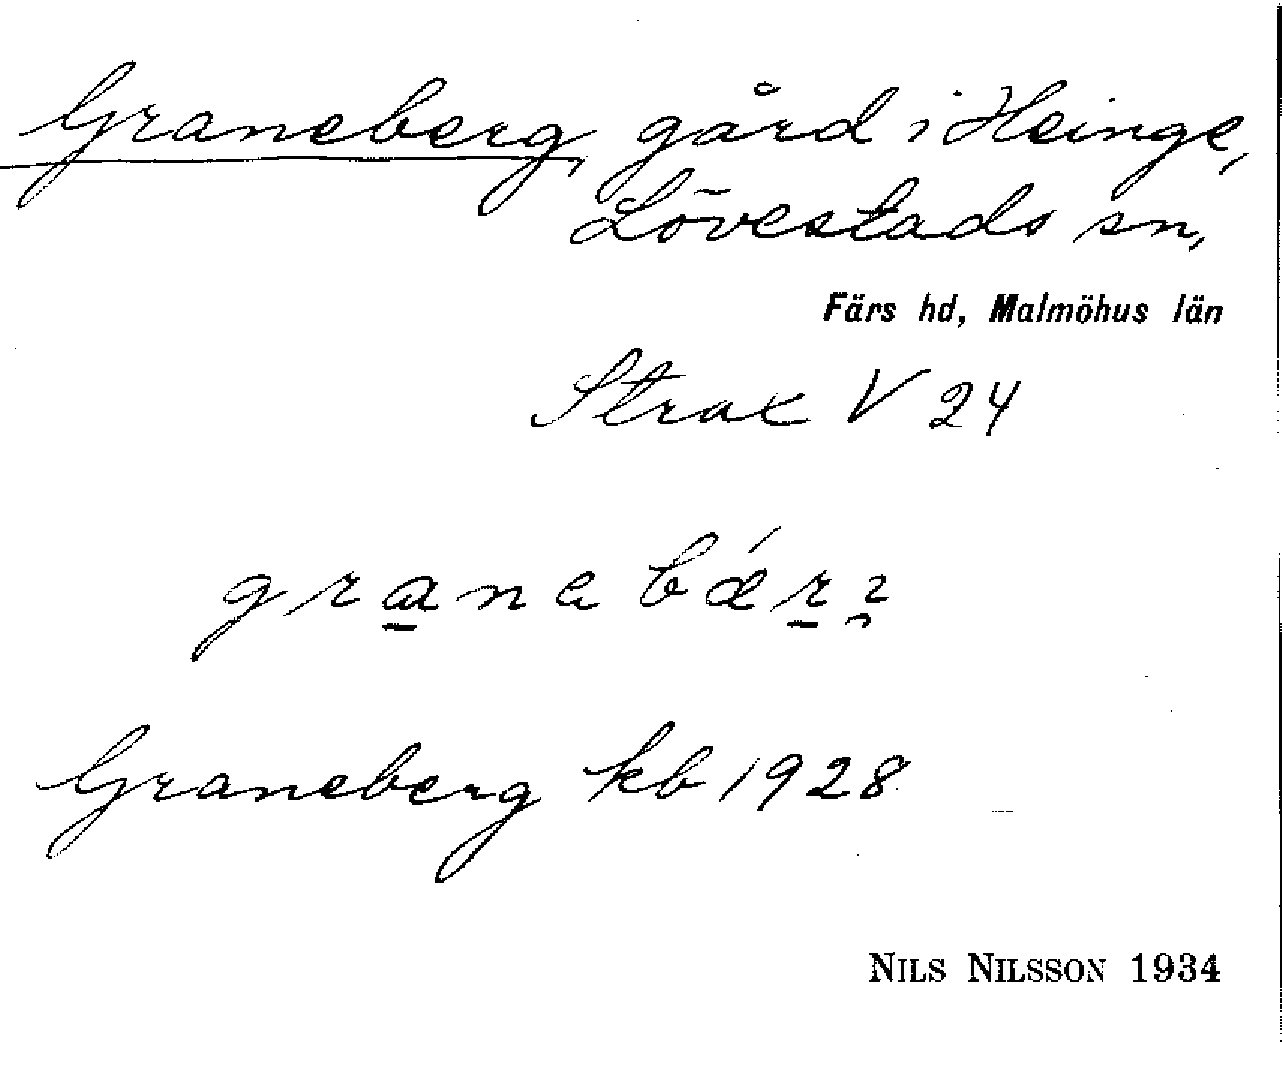 Graneberg, gård i Heinge,
Lövestads sn,
Färs hd, Malmöhus län
Strax V 24
Graneberg kb 1928
NILS NILSSON 1934